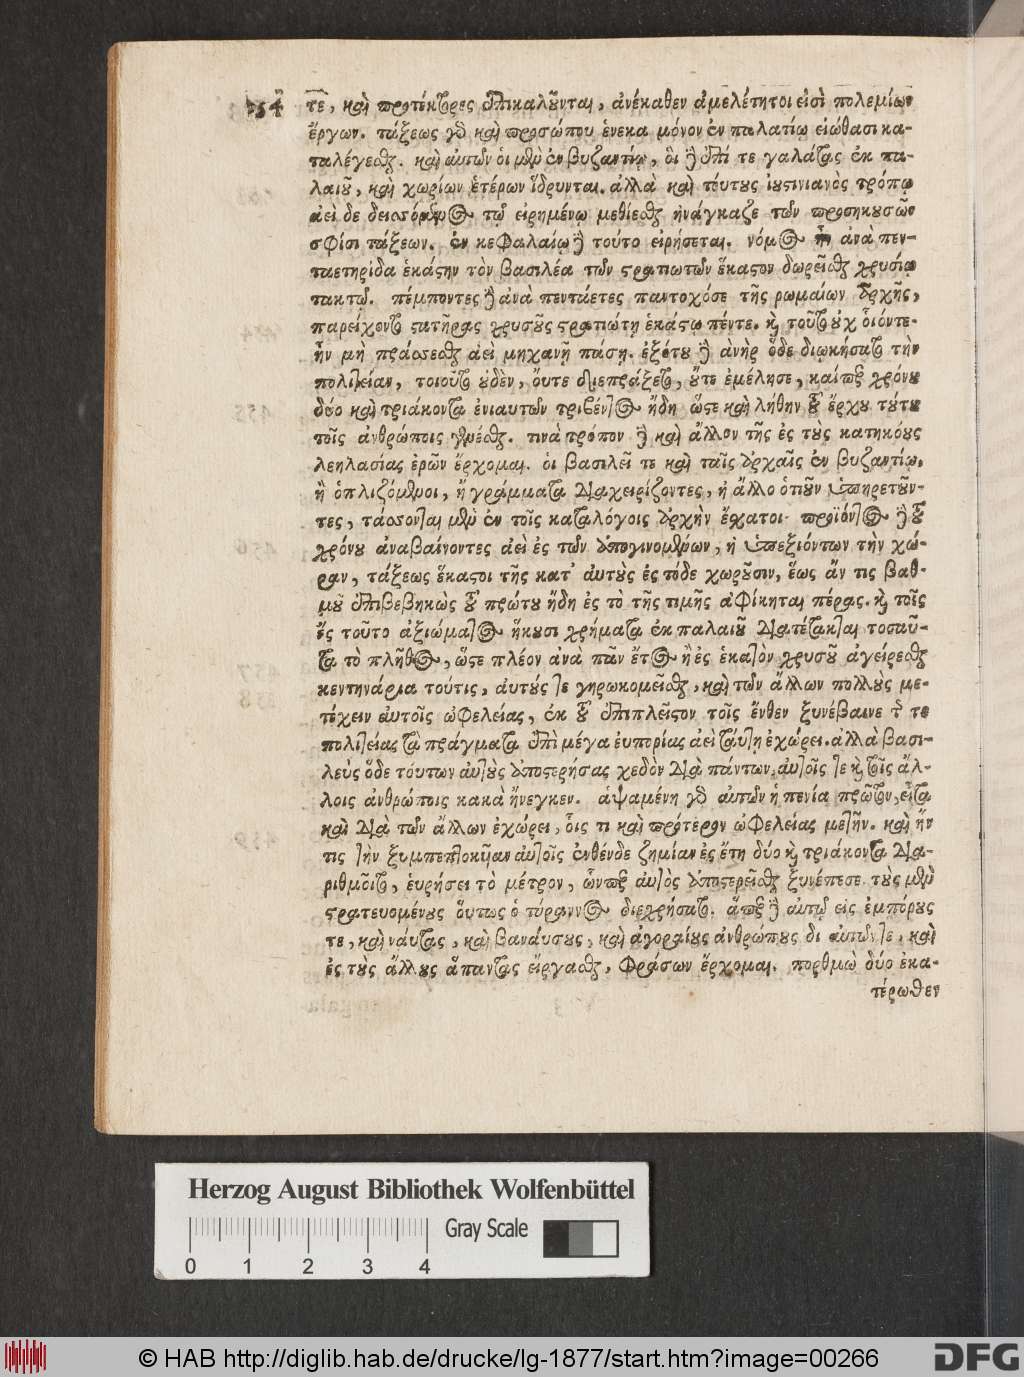 254 τε, καὶ προτέκτορες ἐπικαλοῦνται, ἀνέκαθεν ἀμελέτητοι εἰσὶ πολεμίων
ἔργων. τάξεως γὰρ καὶ προσώπου ἕνεκα μόνον ἐν παλατίῳ εἰώθασι κα-
ταλέγεσθαι. καὶ αὐτῶν οἱ μὲν ἐν βυζαντίῳ, οἳ δὲ ἐπί τε γαλάτας ἐκ πα-
λαιοῦ, καὶ χωρίων ἑτέρων ἵδρυνται. ἀλλὰ καὶ τούτους ἰουστινιανὸς τρόπῳ
ἀεὶ δὲ δεισσόμενος τῷ εἰρημένῳ μεθίεσθαι ἠνάγκαζε τῶν προσηκουσῶν
σφίσι τάξεων. ἐν κεφαλαίῳ δὲ τοῦτο εἰρήσεται. νόμος ἦν ἀνὰ πεν-
ταετηρίδα ἑκάστην τὸν βασιλέα τῶν στρατιωτῶν ἕκαστον δωρεῖσθαι χρυσίῳ
τακτῷ. πέμποντες δὲ ἀνὰ πεντάετες πανταχόσε τῆς ῥωμαίων ἀρχῆς,
παρείχοντο στατῆρας χρυσοῦς στρατιώτῃ ἑκάστῳ πέντε. καὶ τοῦτο οὐχ οἱόντε
ἦν μὴ πράσσεσθαι ἀεὶ μηχανῇ πάσῃ. ἐξότου δὲ ἀνὴρ ὅδε διῳκήσατο τὴν
πολιτείαν, τοιοῦτο οὐδὲν, οὔτε διεπράξετο, οὔτε ἐμέλησε, καίπερ χρόνου
δύο καὶ τριάκοντα ἐνιαυτῶν τριβέντος ἤδη ὥστε καὶ λήθην τοῦ ἔργου τούτου
τοῖς ἀνθρώποις γενέσθαι. τινὰ τρόπον δὲ καὶ ἄλλον τῆς ἐς τοὺς κατηκόους
λεηλασίας ἐρῶν ἔρχομαι. οἱ βασιλεῖ τε καὶ ταῖς ἀρχαῖς ἐν βυζαντίῳ,
ἢ ὁπλιζόμενοι, ἢ γράμματα διαχειρίζοντες, ἢ ἄλλο ὁτιοῦν ὑπηρετοῦν-
τες, τάσσονται μὲν ἐν τοῖς καταλόγοις ἀρχὴν ἔσχατοι· προϊόντος δὲ τοῦ
χρόνου ἀναβαίνοντες ἀεὶ ἐς τῶν ἀπογινομένων, ἢ ὑπεξιόντων τὴν χώ-
ραν, τάξεως ἕκαστοι τῆς κατ' αὐτοὺς ἐς τόδε χωροῦσιν, ἕως ἄν τις βαθ-
μοῦ ἐπιβεβηκὼς τοῦ πρώτου ἤδη ἐς τὸ τῆς τιμῆς ἀφίκηται πέρας. καὶ τοῖς
ἐς τοῦτο ἀξιώματος ἥκουσι χρήματα ἐκ παλαιοῦ διατέτακται τοσαῦ-
τα τὸ πλῆθος, ὥστε πλέον ἀνὰ πᾶν ἔτος ἢ ἐς ἑκατὸν χρυσοῦ ἀγείρεσθαι
κεντηνάρια τούτις, αὐτούς τε γηρωκομεῖσθαι, καὶ τῶν ἄλλων πολλοὺς με-
τέχειν αὐτοῖς ὠφελείας, ἐκ τοῦ ἐπιπλεῖστον τοῖς ἔνθεν ξυνέβαινε τά τε
πολιτείας τὰ πράγματα ἐπὶ μέγα εὐπορίας ἀεὶ ταύτῃ ἐχώρει. ἀλλὰ βασι-
λεὺς ὅδε τούτων αὐτοὺς ἀποστερήσας σχεδὸν διὰ πάντων, αὐτοῖς τε καὶ τοῖς ἄλ-
λοις ἀνθρώποις κακὰ ἤνεγκεν. ἁψαμένη γὰρ αὐτῶν ἡ πενία πρῶτον, εἶτα
καὶ διὰ τῶν ἄλλων ἐχώρει, οἷς τι καὶ πρότερον ὠφελείας μετῆν. καὶ ἤν
τις τὴν ξυμπεπτωκυῖαν αὐτοῖς ἐνθένδε ζημίαν ἐς ἔτη δύο καὶ τριάκοντα δια-
ριθμοῖτο, εὑρήσει τὸ μέτρον, ὧνπερ αὐτὸς ἀποστερεῖσθαι ξυνέπεσε τοὺς μὲν
στρατευομένους οὕτως ὁ τύραννος διεχρήσατο. ἅπερ δὲ αὐτῷ εἰς ἐμπόρους
τε, καὶ ναύτας, καὶ βαναύσους, καὶ ἀγοραίους ἀνθρώπους δι αὐτῶν τε, καὶ
ἐς τοὺς ἄλλους ἅπαντας εἴργασται, φράσων ἔρχομαι. πορθμὼ δύο ἑκα-
τέρωθεν
Herzog August Bibliothek Wolfenbüttel
Gray Scale
0 1 2 3 4
© HAB http://diglib.hab.de/drucke/lg-1877/start.htm?image=00266
DFG